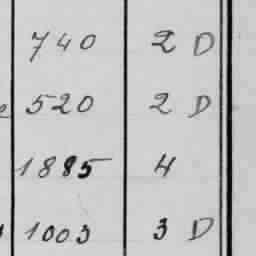 740 2 D
520 2 D
1885 4
1003 3 D